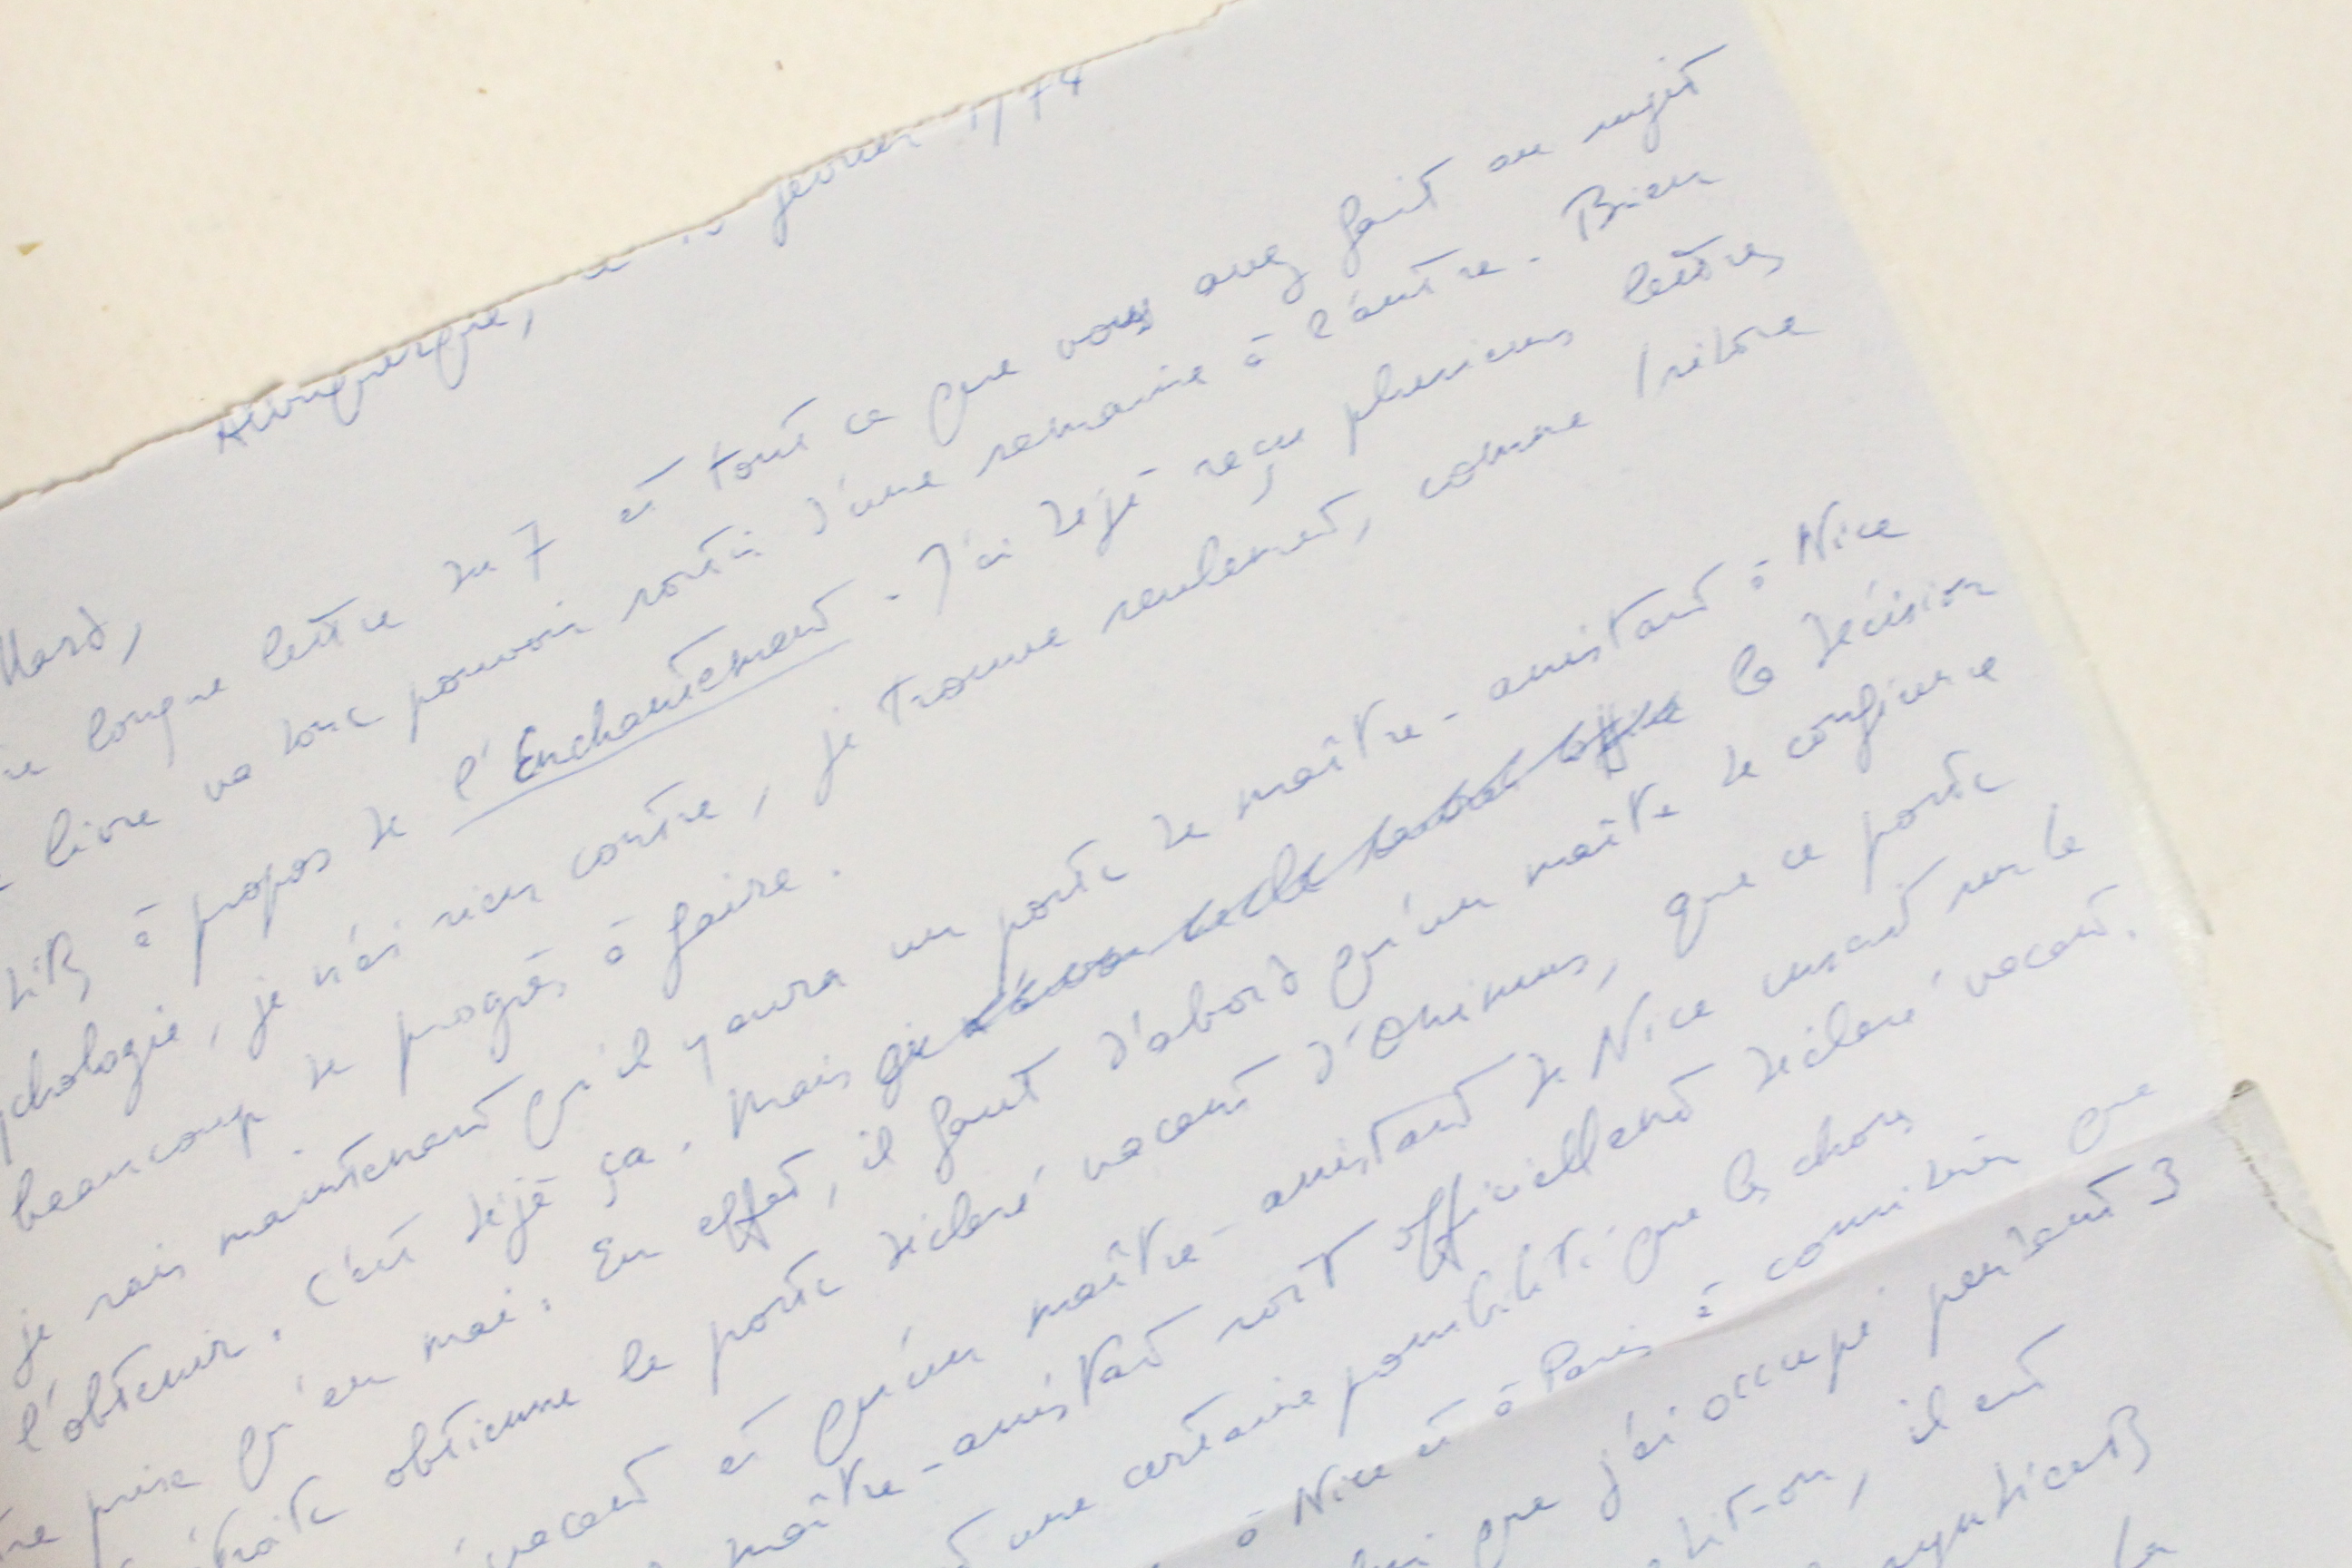 Albuquerque, février 1974
longue lettre du 7 et tout ce que vous avez fait au sujet
livre va donc pouvoir sortir d'une semaine à l'autre. Bien
à propos de l'Enchantement. J'ai déjà reçu plusieurs lettres
je n'ai rien contre, je trouve seulement, comme
beaucoup de progrès à faire.
je sais maintenant qu'il y aura un poste de maître-assistant à Nice
l'obtenir. C'est déjà ça. Mais la décision
prise qu'en mai. En effet, il faut d'abord qu'un maître de conférence
obtienne le poste déclaré vacant d'Onimus, que ce poste
vacant et qu'un maître-assistant de Nice vacant sur le
maître-assistant soit officiellement déclaré vacant.
une certaine possibilité que les choses
à Nice et à Paris à condition que
que j'ai occupé pendant 3
dit-on, il est
la